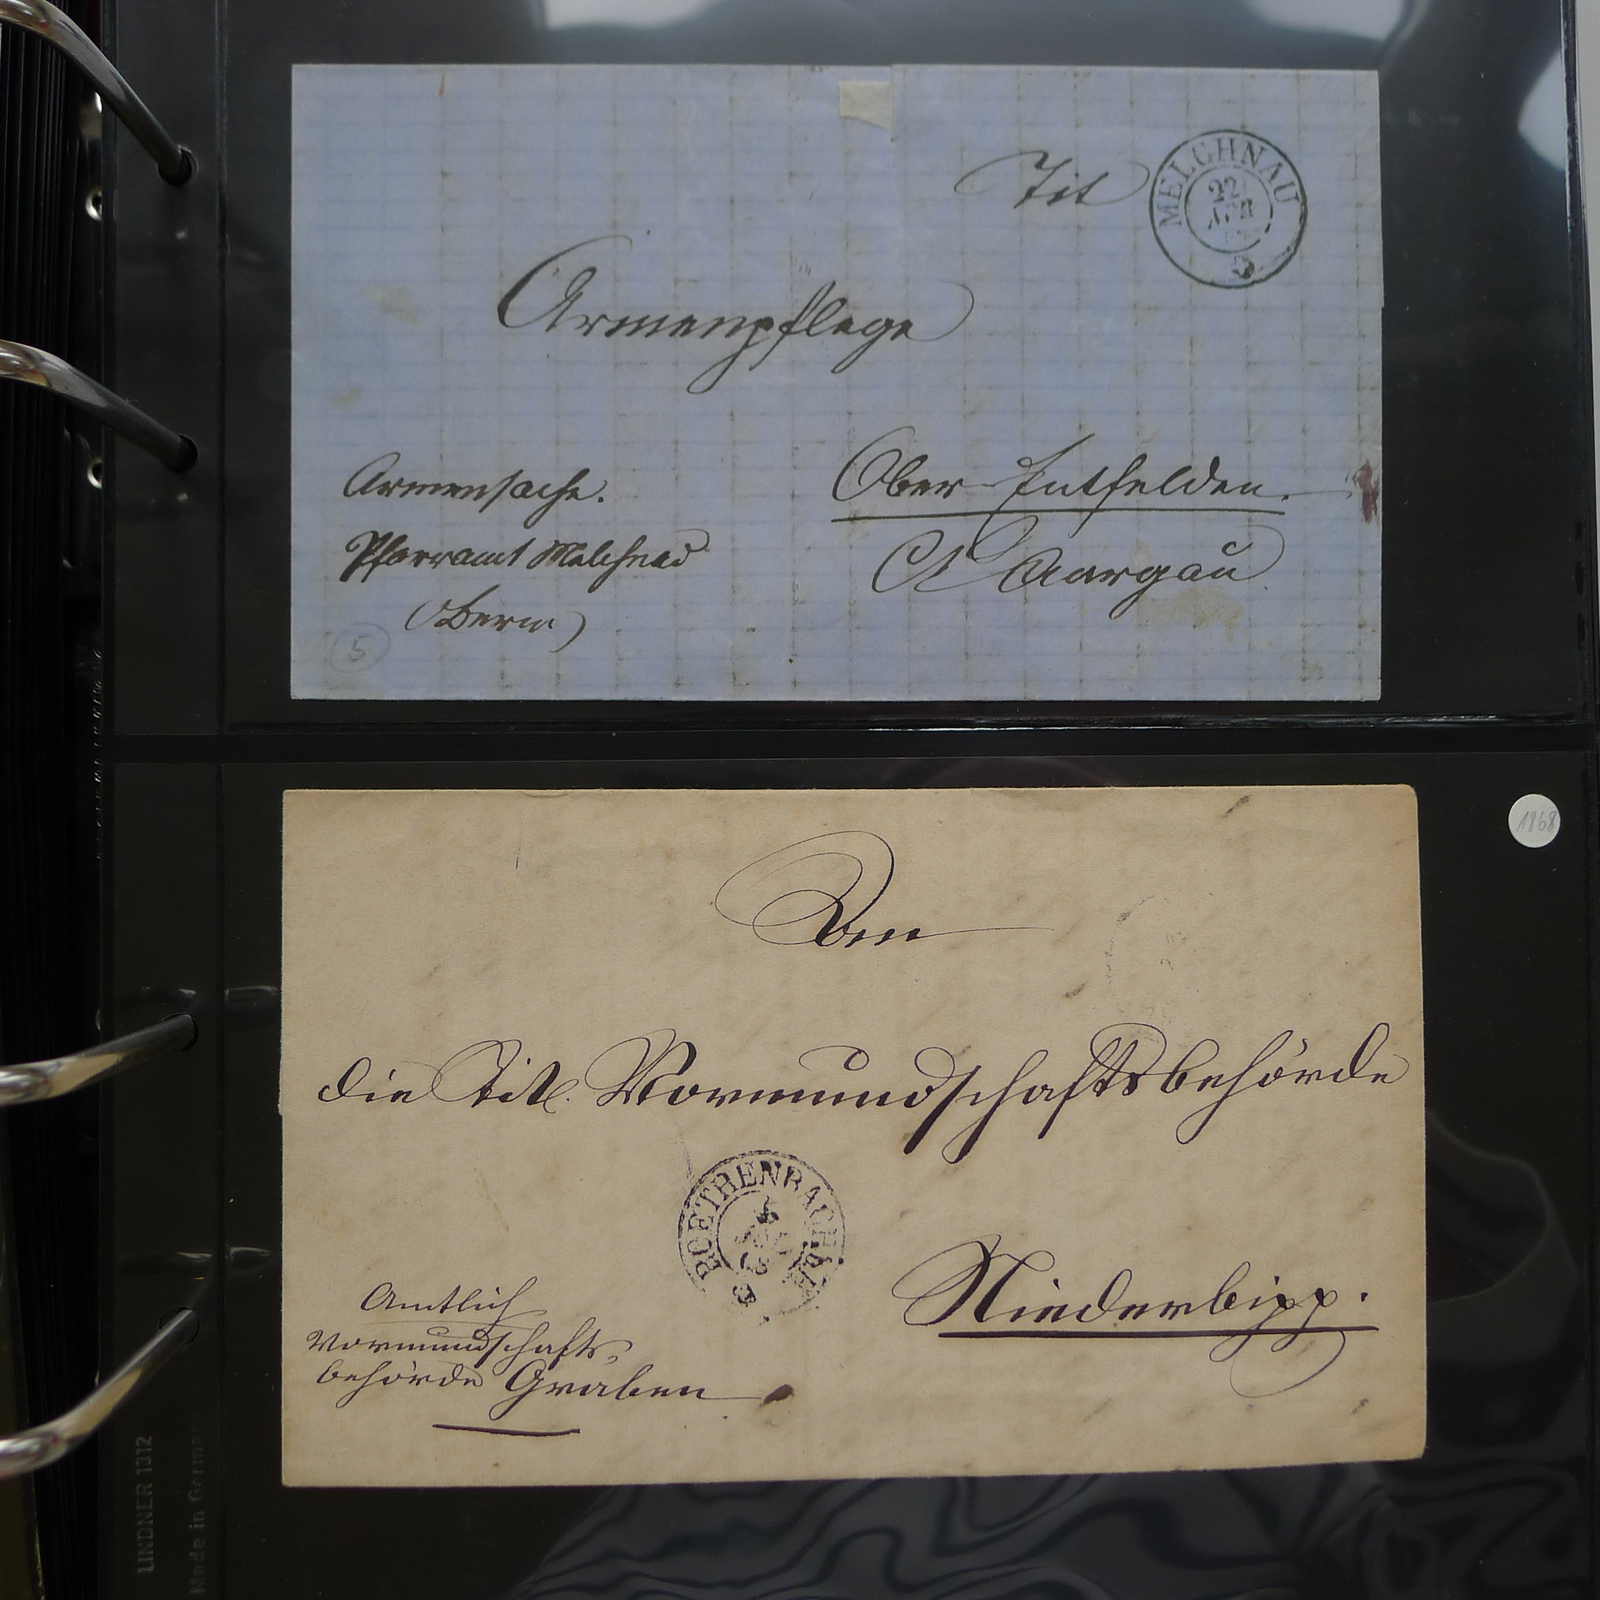 Tit
MELCHNAU
22
Armenpflege
Armensache.
Ober-Entfelden.
Pfarramt Melchnau
Ct Aargau
(Bern)
5
1868
An
die Titl. Vormundschaftsbehörde
ROETHENBACH
Niederbipp.
Amtlich
Vormundschafts-
behörde Graben
LINDNER 1312
Made in German